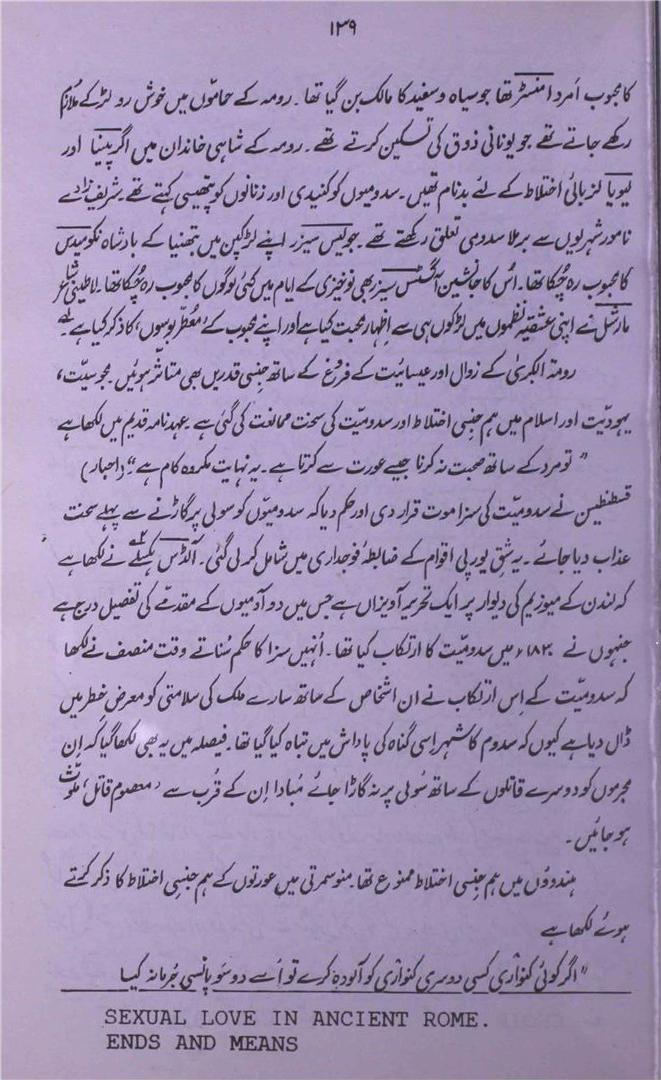 ۱۳۹
کا محبوب اَمرد امنسٹر تھا جو سیاہ و سفید کا مالک بن گیا تھا۔ رومہ کے حمّاموں میں خوش رو لڑکے ملازم
رکھے جاتے تھے جو یونانی ذوق کی تسکین کرتے تھے۔ رومہ کے شاہی خاندان میں اگرپینا اور
لیویا لزبائی اختلاط کے لئے بدنام تھیں۔ سدومیوں کو کنیدی اور زنانوں کو پتھیسی کہتے تھے۔ شریف زادے
نامور شہریوں سے برملا سدومی تعلق رکھتے تھے۔ جولیس سیزر اپنے لڑکپن میں بتھنیا کے بادشاہ نکومیدس
کا محبوب رہ چُکا تھا۔ اُس کا جانشین آگسٹس سیزر بھی نوخیزی کے ایام میں کئی لوگوں کا محبوب رہ چُکا تھا۔ لاطینی شاعر
مارشل نے اپنی عشقیہ نظموں میں لڑکوں ہی سے اِظہارِ محبت کیا ہے اور اپنے محبوب کے 'معطّر بوسوں' کا ذکر کیا ہے۔ لے
رومۃ الکبریٰ کے زوال اور عیسائیت کے فروغ کے ساتھ جنسی قدریں بھی متاثر ہوئیں۔ مجوسیّت،
یہودیّت اور اسلام میں ہم جنسی اختلاط اور سدومیّت کی سخت ممانعت کی گئی ہے۔ عہدنامہ قدیم میں لکھا ہے
"تو مرد کے ساتھ صحبت نہ کرنا جیسے عورت سے کرتا ہے۔ یہ نہایت مکروہ کام ہے"۔ (احبار)
قسطنطین نے سدومیّت کی سزا موت قرار دی اور حکم دیا کہ سدومیّوں کو سولی پر گاڑنے سے پہلے سخت
عذاب دیا جائے۔ یہ شِق یورپی اقوام کے ضابطۂ فوجداری میں شامل کر لی گئی۔ آلڈس ہکسلے ۲؎ نے لکھا ہے
کہ لندن کے میوزیم کی دیوار پر ایک تحریر آویزاں ہے جس میں دو آدمیوں کے مقدمے کی تفصیل درج ہے
جنہوں نے ۱۸۳۰ء میں سدومیّت کا ارتکاب کیا تھا۔ اُنہیں سزا کا حکم سُناتے وقت منصف نے لکھا
کہ سدومیّت کے اِس ارتکاب نے ان اشخاص کے ساتھ سارے ملک کی سلامتی کو معرضِ خطر میں
ڈال دیا ہے کیوں کہ سدوم کا شہر اِسی گناہ کی پاداش میں تباہ کیا گیا تھا۔ فیصلہ میں یہ بھی لکھا گیا کہ اِن
مجرموں کو دوسرے قاتلوں کے ساتھ سُولی پر نہ گاڑا جائے مُبادا اِن کے قُرب سے 'معصوم قاتل' ملوّث
ہو جائیں۔
ہندوؤں میں ہم جنسی اختلاط ممنوع تھا۔ منوسمرتی میں عورتوں کے ہم جنسی اختلاط کا ذکر کرتے
ہوئے لکھا ہے
"اگر کوئی کنواری کسی دوسری کنواری کو آلودہ کرے تو اُسے دو سَو پانسی جُرمانہ کیا
SEXUAL LOVE IN ANCIENT ROME.
ENDS AND MEANS